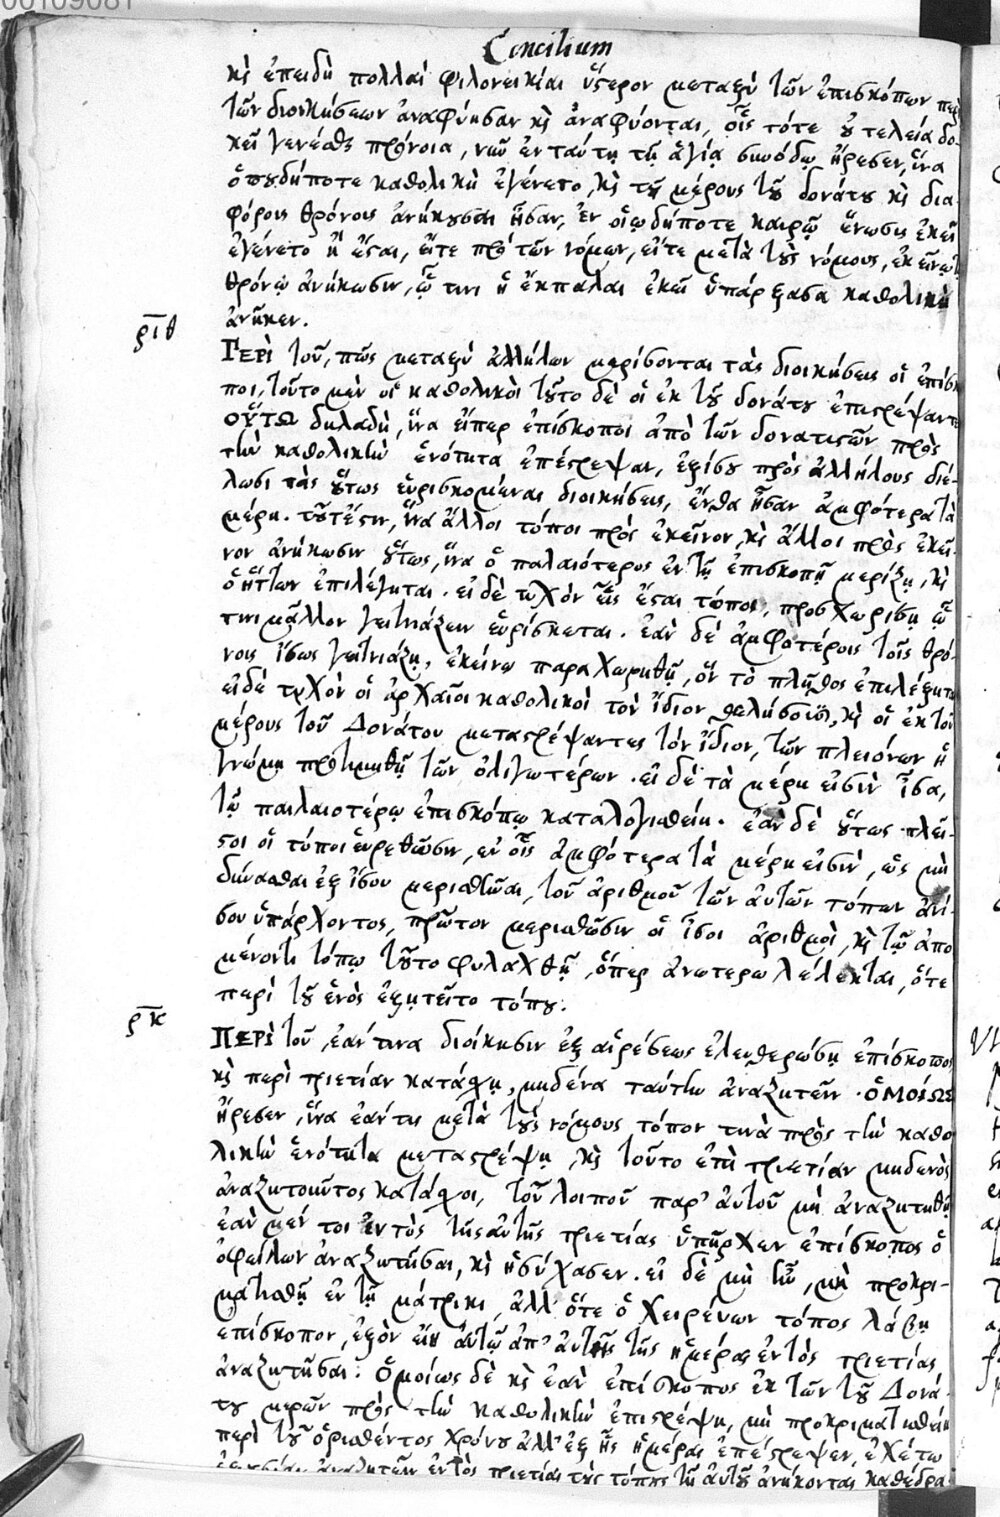 00109081
Concilium
κὶ ἐπειδὴ πολλαὶ φιλονεικίαι ὕστερον μεταξὺ τῶν ἐπισκόπων περὶ
τῶν διοικήσεων ἀναφύησαν κὶ ἀναφύονται, οἷς τότε οὐ τελεία δο-
κεῖ γενέσθαι πρόνοια, νῦν ἐν ταύτῃ τῇ ἁγίᾳ συνόδῳ ἤρεσεν, ἵνα
ὁπουδήποτε καθολικὴ ἐγένετο, κὶ τοῦ μέρους τοῦ δονάτου κὶ δια-
φόροις θρόνοις ἀνήκουσαι ἦσαν, ἐν οἱῳδήποτε καιρῷ ἕνωσις ἐκεῖ
ἐγένετο ἢ ἔσται, εἴτε πρὸ τῶν νόμων, εἴτε μετὰ τοὺς νόμους, ἐκείνῳ τῷ
θρόνῳ ἀνήκωσιν, ᾧ τινι ἡ ἔκπαλαι ἐκεῖ ὑπάρξασα καθολικὴ
ἀνῆκεν.
ριθ
Περὶ τοῦ, πῶς μεταξὺ ἀλλήλων μερίσονται τὰς διοικήσεις οἱ ἐπίσκο
ποι, τοῦτο μὲν οἱ καθολικοὶ τοῦτο δὲ οἱ ἐκ τοῦ δονάτου ἐπιστρέψαντες
οὕτω δηλαδὴ, ἵνα εἴπερ ἐπίσκοποι ἀπὸ τῶν δονατιστῶν πρὸς
τὴν καθολικὴν ἑνότητα ἐπέστρεψαν, ἐξίσου πρὸς ἀλλήλους διέ-
λωσι τὰς οὕτως εὑρισκομένας διοικήσεις, ἔνθα ἦσαν ἀμφότερα τὰ
μέρη. τουτέστιν, ἵνα ἄλλοι τόποι πρὸς ἐκεῖνον, κὶ ἄλλοι πρὸς ἐκεῖ-
νον ἀνήκωσιν οὕτως, ἵνα ὁ παλαιότερος ἐν τῇ ἐπισκοπῇ μερίζῃ, κὶ
ὁ ἥττων ἐπιλέγηται. εἰ δὲ τυχὸν εἷς ἔσται τόπος, προσχωρίσῃ ᾧ
τινι μᾶλλον γειτνιάζειν εὑρίσκεται. ἐὰν δὲ ἀμφοτέροις τοῖς θρό-
νοις ἴσως γειτνιάζῃ, ἐκείνῳ παραχωρηθῇ, ὃν τὸ πλῆθος ἐπιλέξηται
εἰ δὲ τυχὸν οἱ ἀρχαῖοι καθολικοὶ τὸν ἴδιον θελήσουσι, κὶ οἱ ἐκ τοῦ
μέρους τοῦ Δονάτου μεταστρέψαντες τὸν ἴδιον, τῶν πλειόνων ἡ
γνώμη προτιμηθῇ τῶν ὀλιγωτέρων. εἰ δὲ τὰ μέρη εἰσὶν ἶσα,
τῷ παιλαιοτέρῳ ἐπισκόπῳ καταλογισθείη. ἐὰν δὲ οὕτως πλεῖ-
στοι οἱ τόποι εὑρεθῶσιν, ἐν οἷς ἀμφότερα τὰ μέρη εἰσὶν, ὡς μὴ
δύνασθαι ἐξ ἴσου μερισθῆναι, τοῦ ἀριθμοῦ τῶν αὐτῶν τόπων ἀνί-
σου ὑπάρχοντος, πρῶτον μερισθῶσιν οἱ ἶσοι ἀριθμοὶ, κὶ τῷ ἀπο
μένοντι τόπῳ τοῦτο φυλαχθῇ, ὅπερ ἀνωτερω λέλεκται, ὅτε
περὶ τοῦ ἑνὸς ἐζητεῖτο τόπου.
ρκ
Περὶ τοῦ, ἐάν τινα διοίκησιν ἐξ αἱρέσεως ἐλευθερώσῃ ἐπίσκοπος
κὶ περὶ τριετίαν κατάσχῃ, μηδένα ταύτην ἀναζητεῖν. ὁμοίως
ἤρεσεν, ἵνα ἐάν τις μετὰ τοὺς νόμους τόπον τινὰ πρὸς τὴν καθο
λικὴν ἑνότητα μεταστρέψῃ, κὶ τοῦτο ἐπὶ τριετίαν μηδενὸς
ἀναζητοῦντος κατάσχοι, τοῦ λοιποῦ παρ' αὐτοῦ μὴ ἀναζητηθῇ
ἐὰν μέν τοι ἐντὸς τῆς αὐτῆς τριετίας ὑπῆρχεν ἐπίσκοπος ὁ
ὀφείλων ἀναζητῆσαι, κὶ ἡσύχασεν. εἰ δὲ μὴ ἦν, μὴ προκρι-
ματισθῇ ἐν τῇ μάτρικι, ἀλλ' ὅτε ὁ χειρεύων τόπος λάβῃ
ἐπίσκοπον, ἐξὸν εἴη αὐτῷ ἀπ' αὐτῆς τῆς ἡμέρας ἐντὸς τριετίας
ἀναζητῆσαι. Ὁμοίως δὲ κὶ ἐὰν ἐπίσκοπος ἐκ τῶν τοῦ Δονά-
του μερῶν πρὸς τὴν καθολικὴν ἐπιστρέψῃ, μὴ προκριματισθείη
περὶ τοῦ ὁρισθέντος χρόνου ἀλλ' ἐξ ἧς ἡμέρας ἐπέστρεψεν, ἐχέτω
ἐξουσίαν ἀναζητεῖν ἐντὸς τριετίας τοὺς τόπους τοὺς τῇ αὐτοῦ ἀνήκοντας καθέδρᾳ